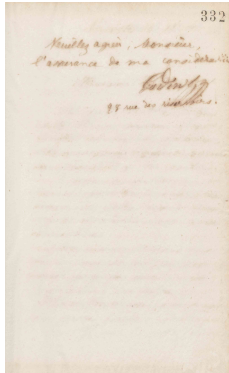 332
Veuillez agréer, Monsieur,
l'assurance de ma considération
98 rue des